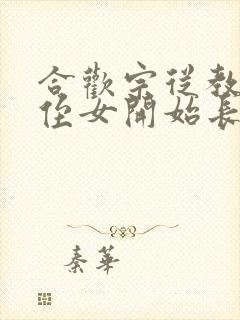 合歡宗從教
侄女開始長
秦華